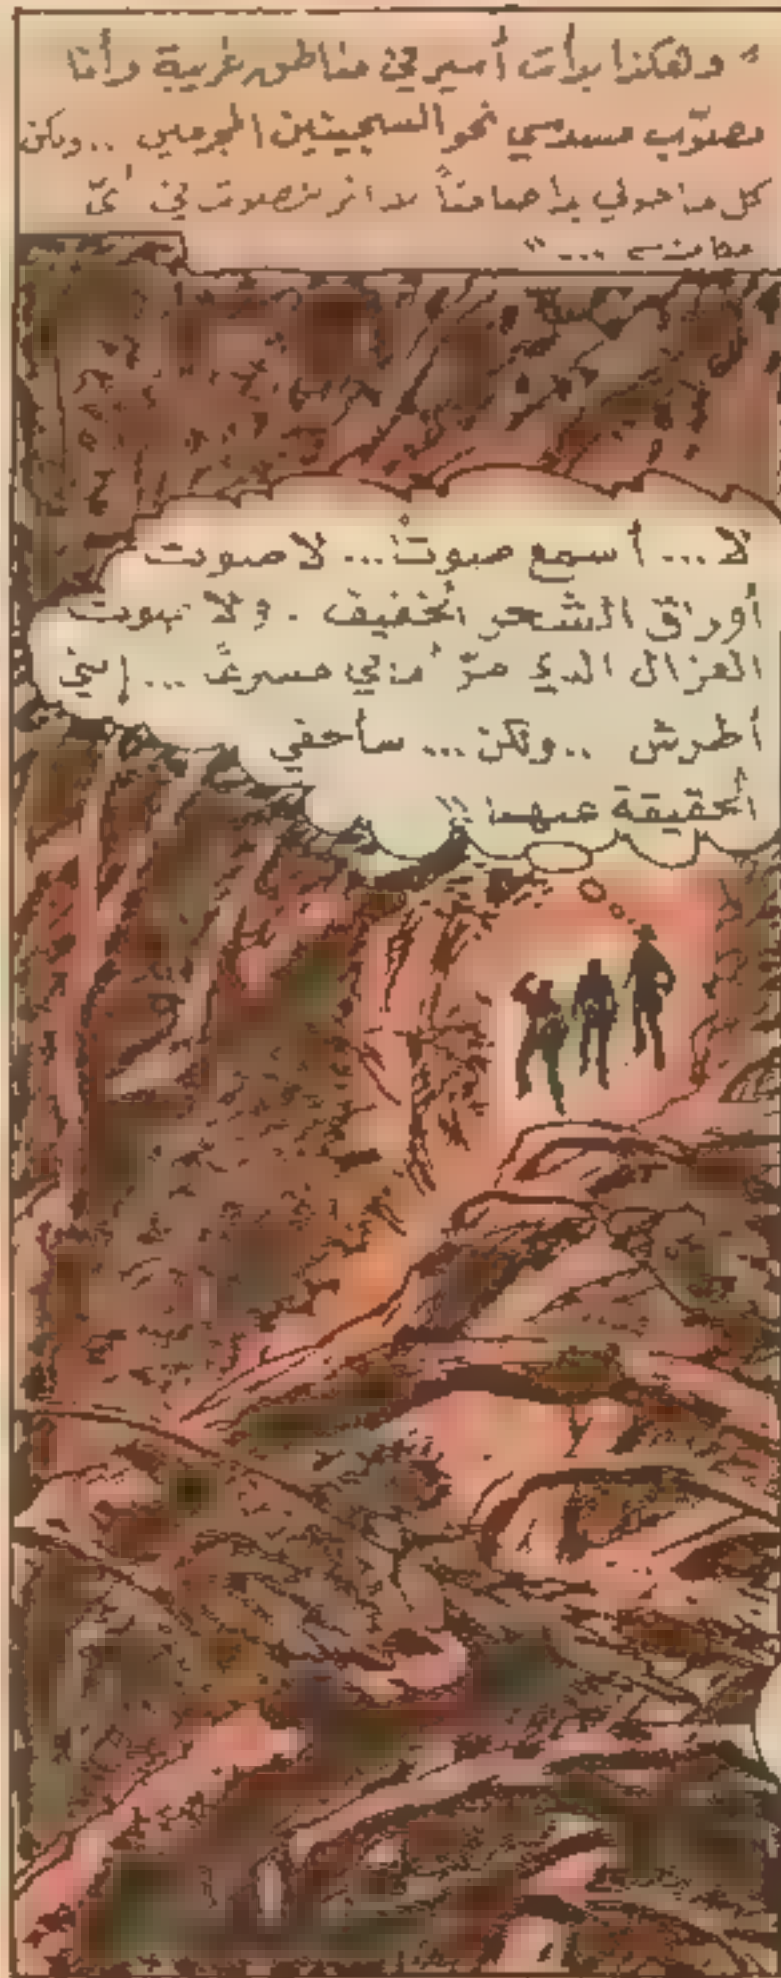 " وهكذا بدأت أسير في مناطق غريبة وأنا
مصوّب مسدسي نحو السجينين المجرمين ..ولكن
كل ما حولي بدا صامتاً لا أثر لصوت في أيّ
مكان ... "
لا ... أسمع صوتاً... لا صوت
أوراق الشجر الخفيف . ولا صوت
الغزال الذي مرّ أمامي مسرعاً ... إنني
أطرش ..ولكن ... سأخفي
الحقيقة عنهما !!